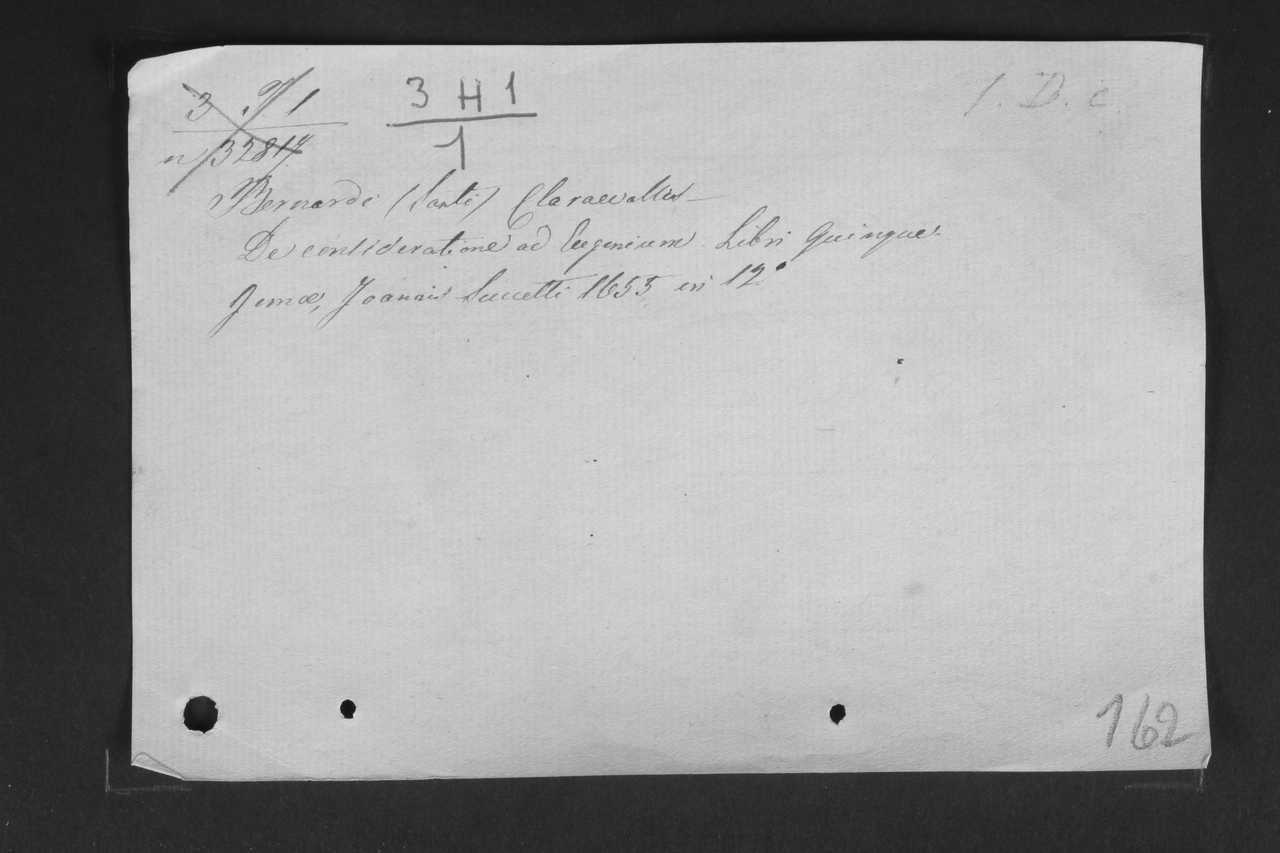 3 H 1
n 3281
3 H 1
1
1. D. c.
Bernardi (Santi) Claraevallis
De consideratione ad Eugenium Libri Quinque
Jenuæ, Joannis 1655 in 12°
162